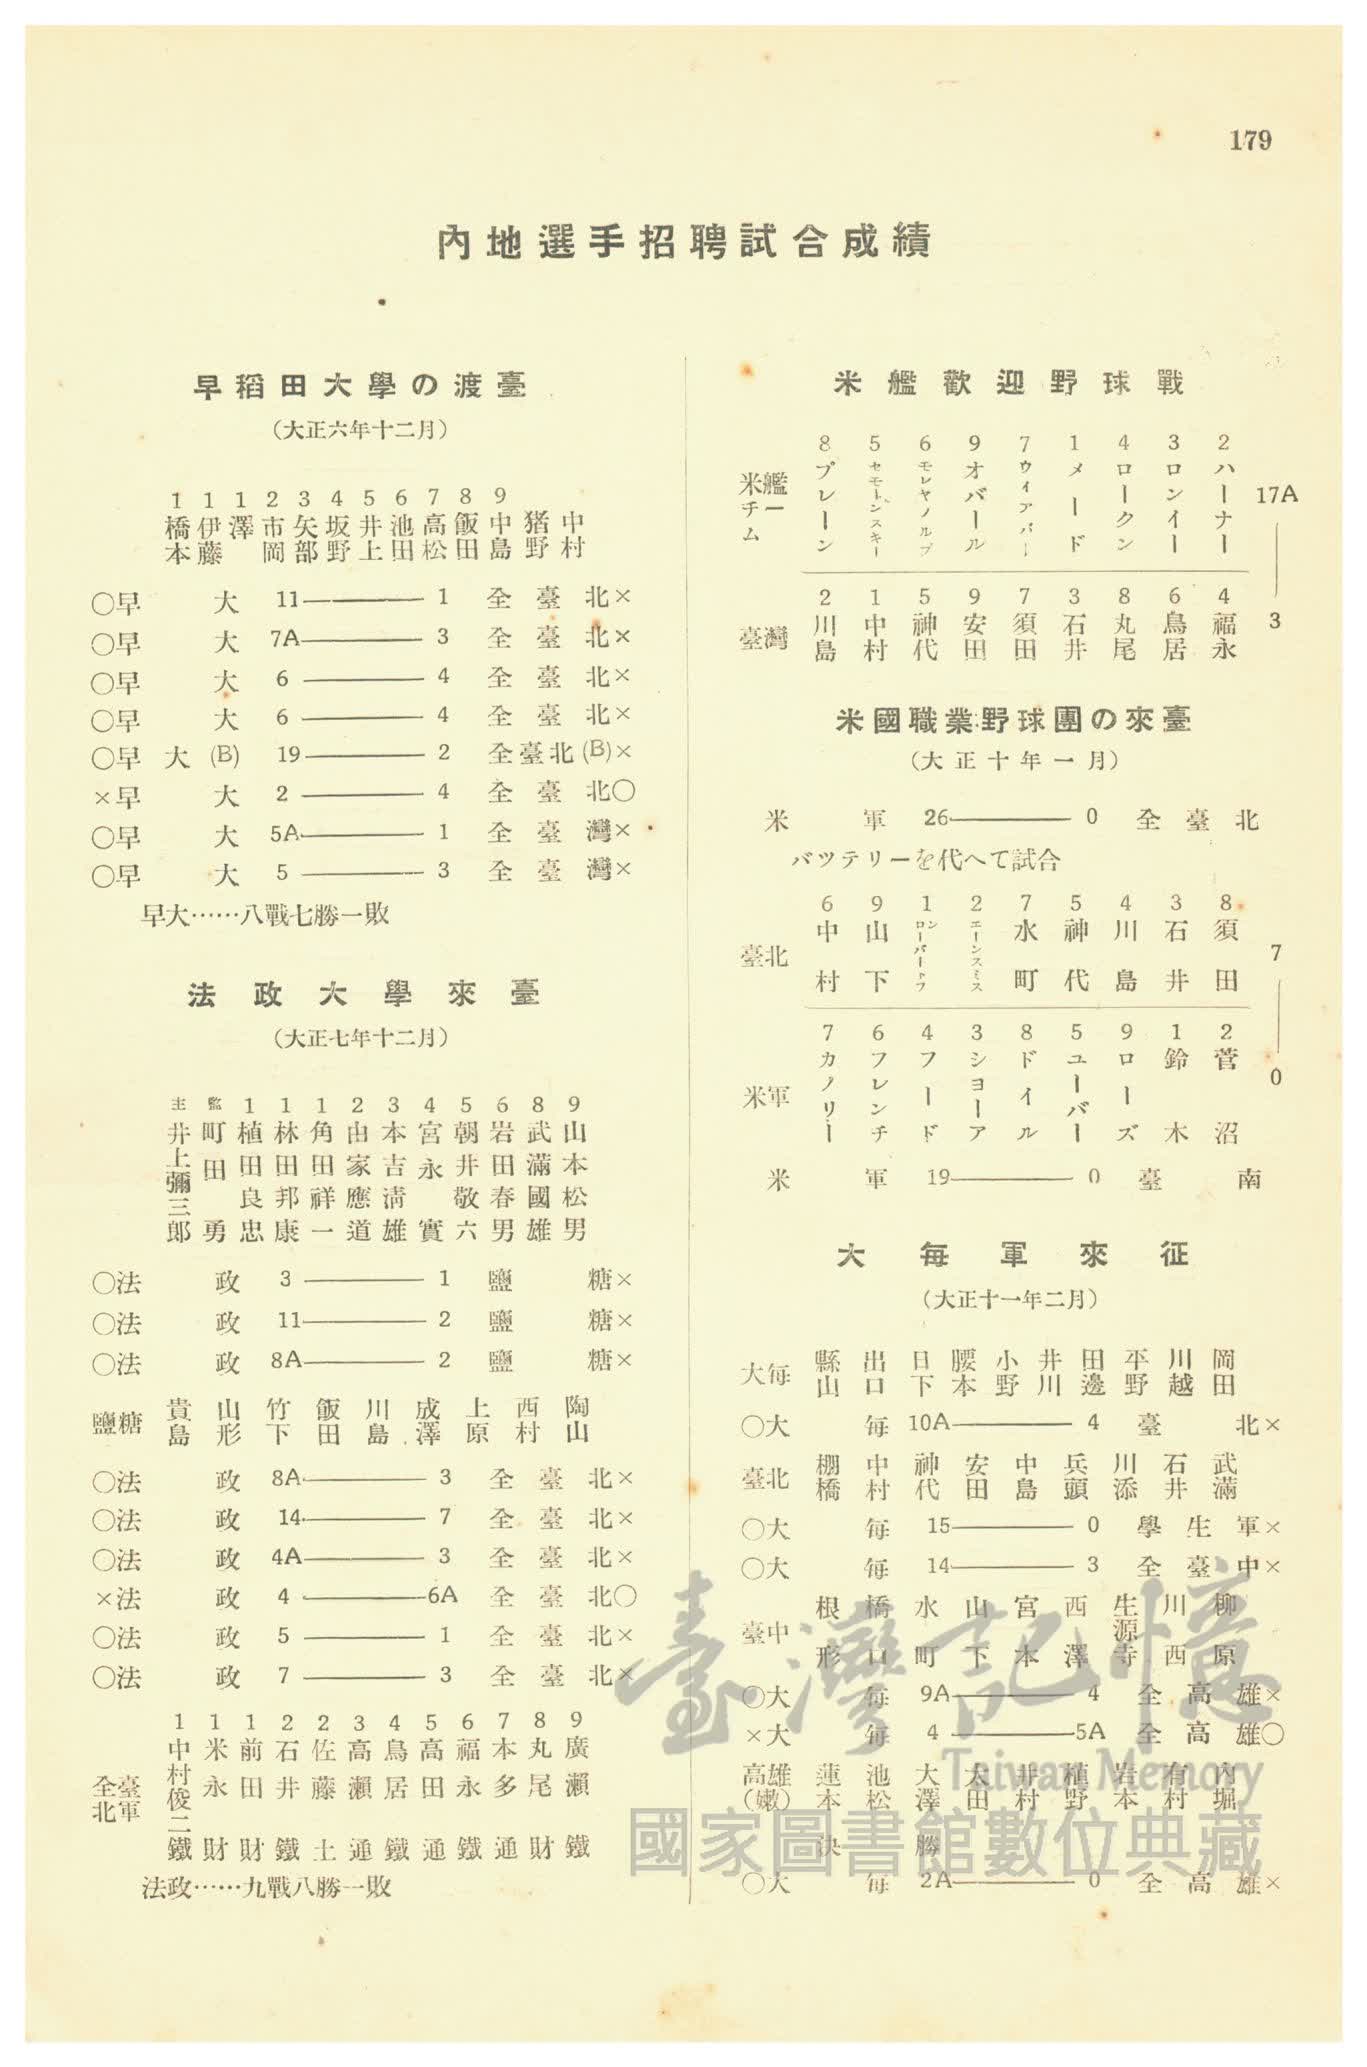 179
內地選手招聘試合成績
早稻田大學の渡臺
（大正六年十二月）
1 1 1 2 3 4 5 6 7 8 9
橋本 伊藤 澤 市岡 矢部 坂野 井上 池田 高松 飯田 中島 猪野 中村
○早大 11——1 全臺北×
○早大 7A——3 全臺北×
○早大 6——4 全臺北×
○早大 6——4 全臺北×
○早大(B) 19——2 全臺北(B)×
×早大 2——4 全臺北○
○早大 5A——1 全臺灣×
○早大 5——3 全臺灣×
早大……八戰七勝一敗
法政大學來臺
（大正七年十二月）
主 監 1 1 1 2 3 4 5 6 8 9
井上彌三郎 町田勇 植田良忠 林田邦康 角田祥一 由家應道 本吉淸雄 宮永實 朝井敬六 岩田春男 武滿國雄 山本松男
○法政 3——1 鹽糖×
○法政 11——2 鹽糖×
○法政 8A——2 鹽糖×
鹽糖 貴島 山形 竹下 飯田 川島 成澤 上原 西村 陶山
○法政 8A——3 全臺北×
○法政 14——7 全臺北×
○法政 4A——3 全臺北×
×法政 4——6A 全臺北○
○法政 5——1 全臺北×
○法政 7——3 全臺北×
1 1 1 2 2 3 4 5 6 7 8 9
全臺北軍 中村俊二鐵 米永財 前田財 石井鐵 佐藤土 高瀨通 鳥居鐵 高田通 福永鐵 本多通 丸尾財 廣瀨鐵
法政……九戰八勝一敗
米艦歡迎野球戰
8 5 6 9 7 1 4 3 2
米艦チーム プレーン セモーンスキー モレヤノルブ オバール ウィアバー メード ロークン ロンイー ハーナー 17A
2 1 5 9 7 3 8 6 4
臺灣 川島 中村 神代 安田 須田 石井 丸尾 鳥居 福永 3
米國職業野球團の來臺
（大正十年一月）
米軍 26——0 全臺北
バツテリーを代へて試合
6 9 1 2 7 5 4 3 8
臺北 中村 山下 ロンーバートフ エーンスミス 水町 神代 川島 石井 須田 7
7 6 4 3 8 5 9 1 2
米軍 カノリー フレンチ フード シヨーア ドイル ユーバー ローズ 鈴木 菅沼 0
米軍 19——0 臺南
大每軍來征
（大正十一年二月）
大每 縣山 出口 日下 腰本 小野 井川 田邊 平野 川越 岡田
○大每 10A——4 臺北×
臺北 棚橋 中村 神代 安田 中島 兵頭 川添 石井 武滿
○大每 15——0 學生軍×
○大每 14——3 全臺中×
臺中 根形 橋口 水町 山下 宮本 西澤 生源寺 川西 柳原
○大每 9A——4 全高雄×
×大每 4——5A 全高雄○
高雄(嫩) 蓮本 池松 大澤 太田 井村 植野 岩本 有村 內堀
決勝
○大每 2A——0 全高雄×
臺灣記憶
Taiwan Memory
國家圖書館數位典藏